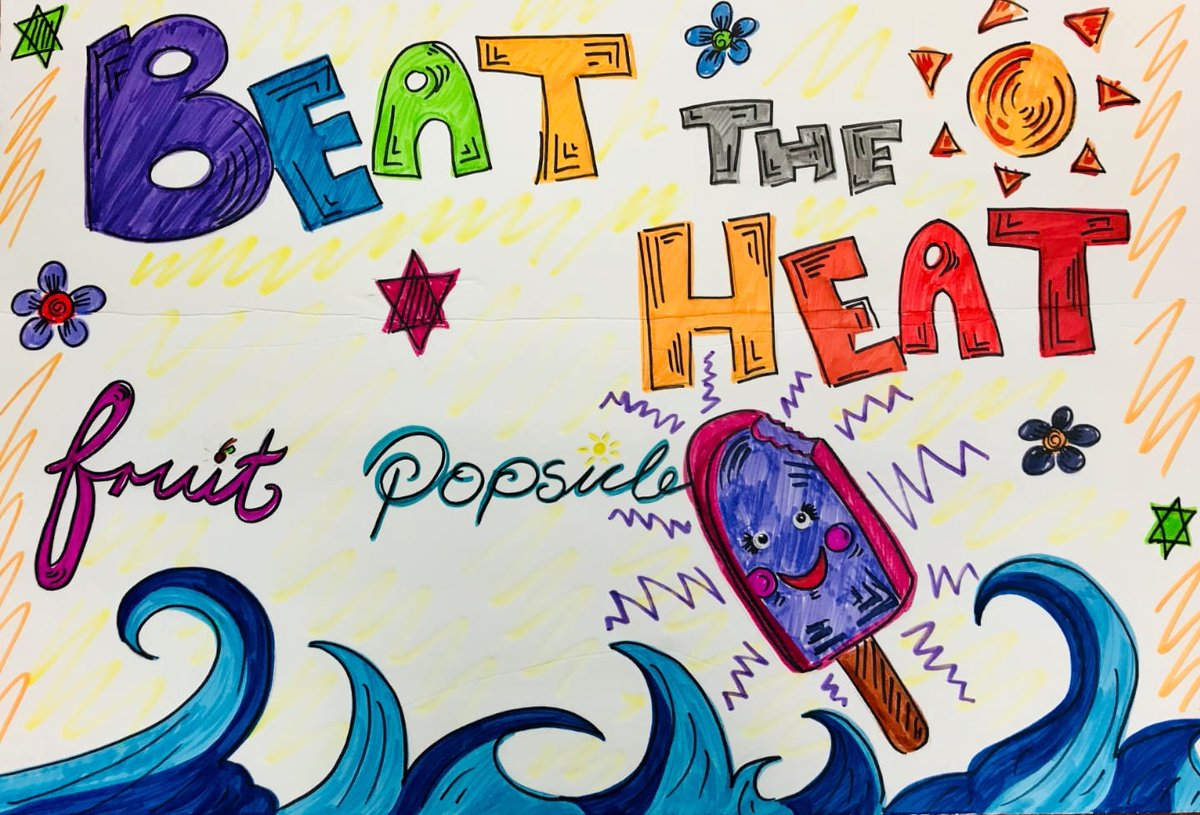 BEAT
THE
HEAT
fruit Popsicle